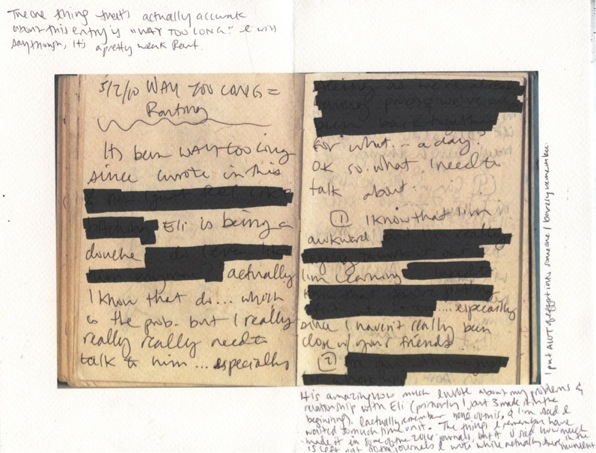 The one thing that's actually accurate
about this entry is "WAY TOO LONG." I will
say though, it's a pretty weak Rant.
5/2/10 WAY TOO LONG =
Ranting
Its been WAY TOO long
since I wrote in this
Eli is being a
douche
actually
I know that do... which
is the prob. but I really
really really need to
talk to him... especially
for what... a day.
OK so what I need to
talk about.
① I know that I'm
awkward
I'm learning
.... especially
since I haven't really been
close w/ your friends
②
I put ALOT of effort into someone I barely remember
It is amazing how much I wrote about my problems &
relationship with Eli (primarily
beginning). I actually remember none of this, & I'm sad I
wasted so much time on it. The things I remember have
made it in some of the 2010 journals, but it is sad how much
is left out of journals I wrote while actually in the
moment